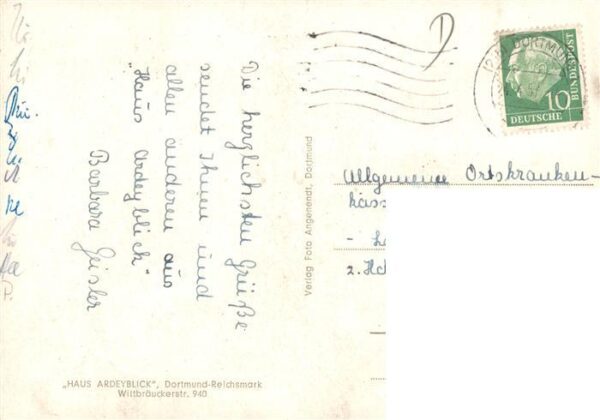 Die herzlichsten Grüße
sendet Ihnen und
allen anderen aus
"Haus Ardeyblick"
Barbara Geisler
„HAUS ARDEYBLICK", Dortmund-Reichsmark
Wittbräuckerstr. 940
Verlag Foto Angenendt, Dortmund
DORTMUND
10
DEUTSCHE
BUNDESPOST
Allgemeine Ortskranken-
kass
2. H